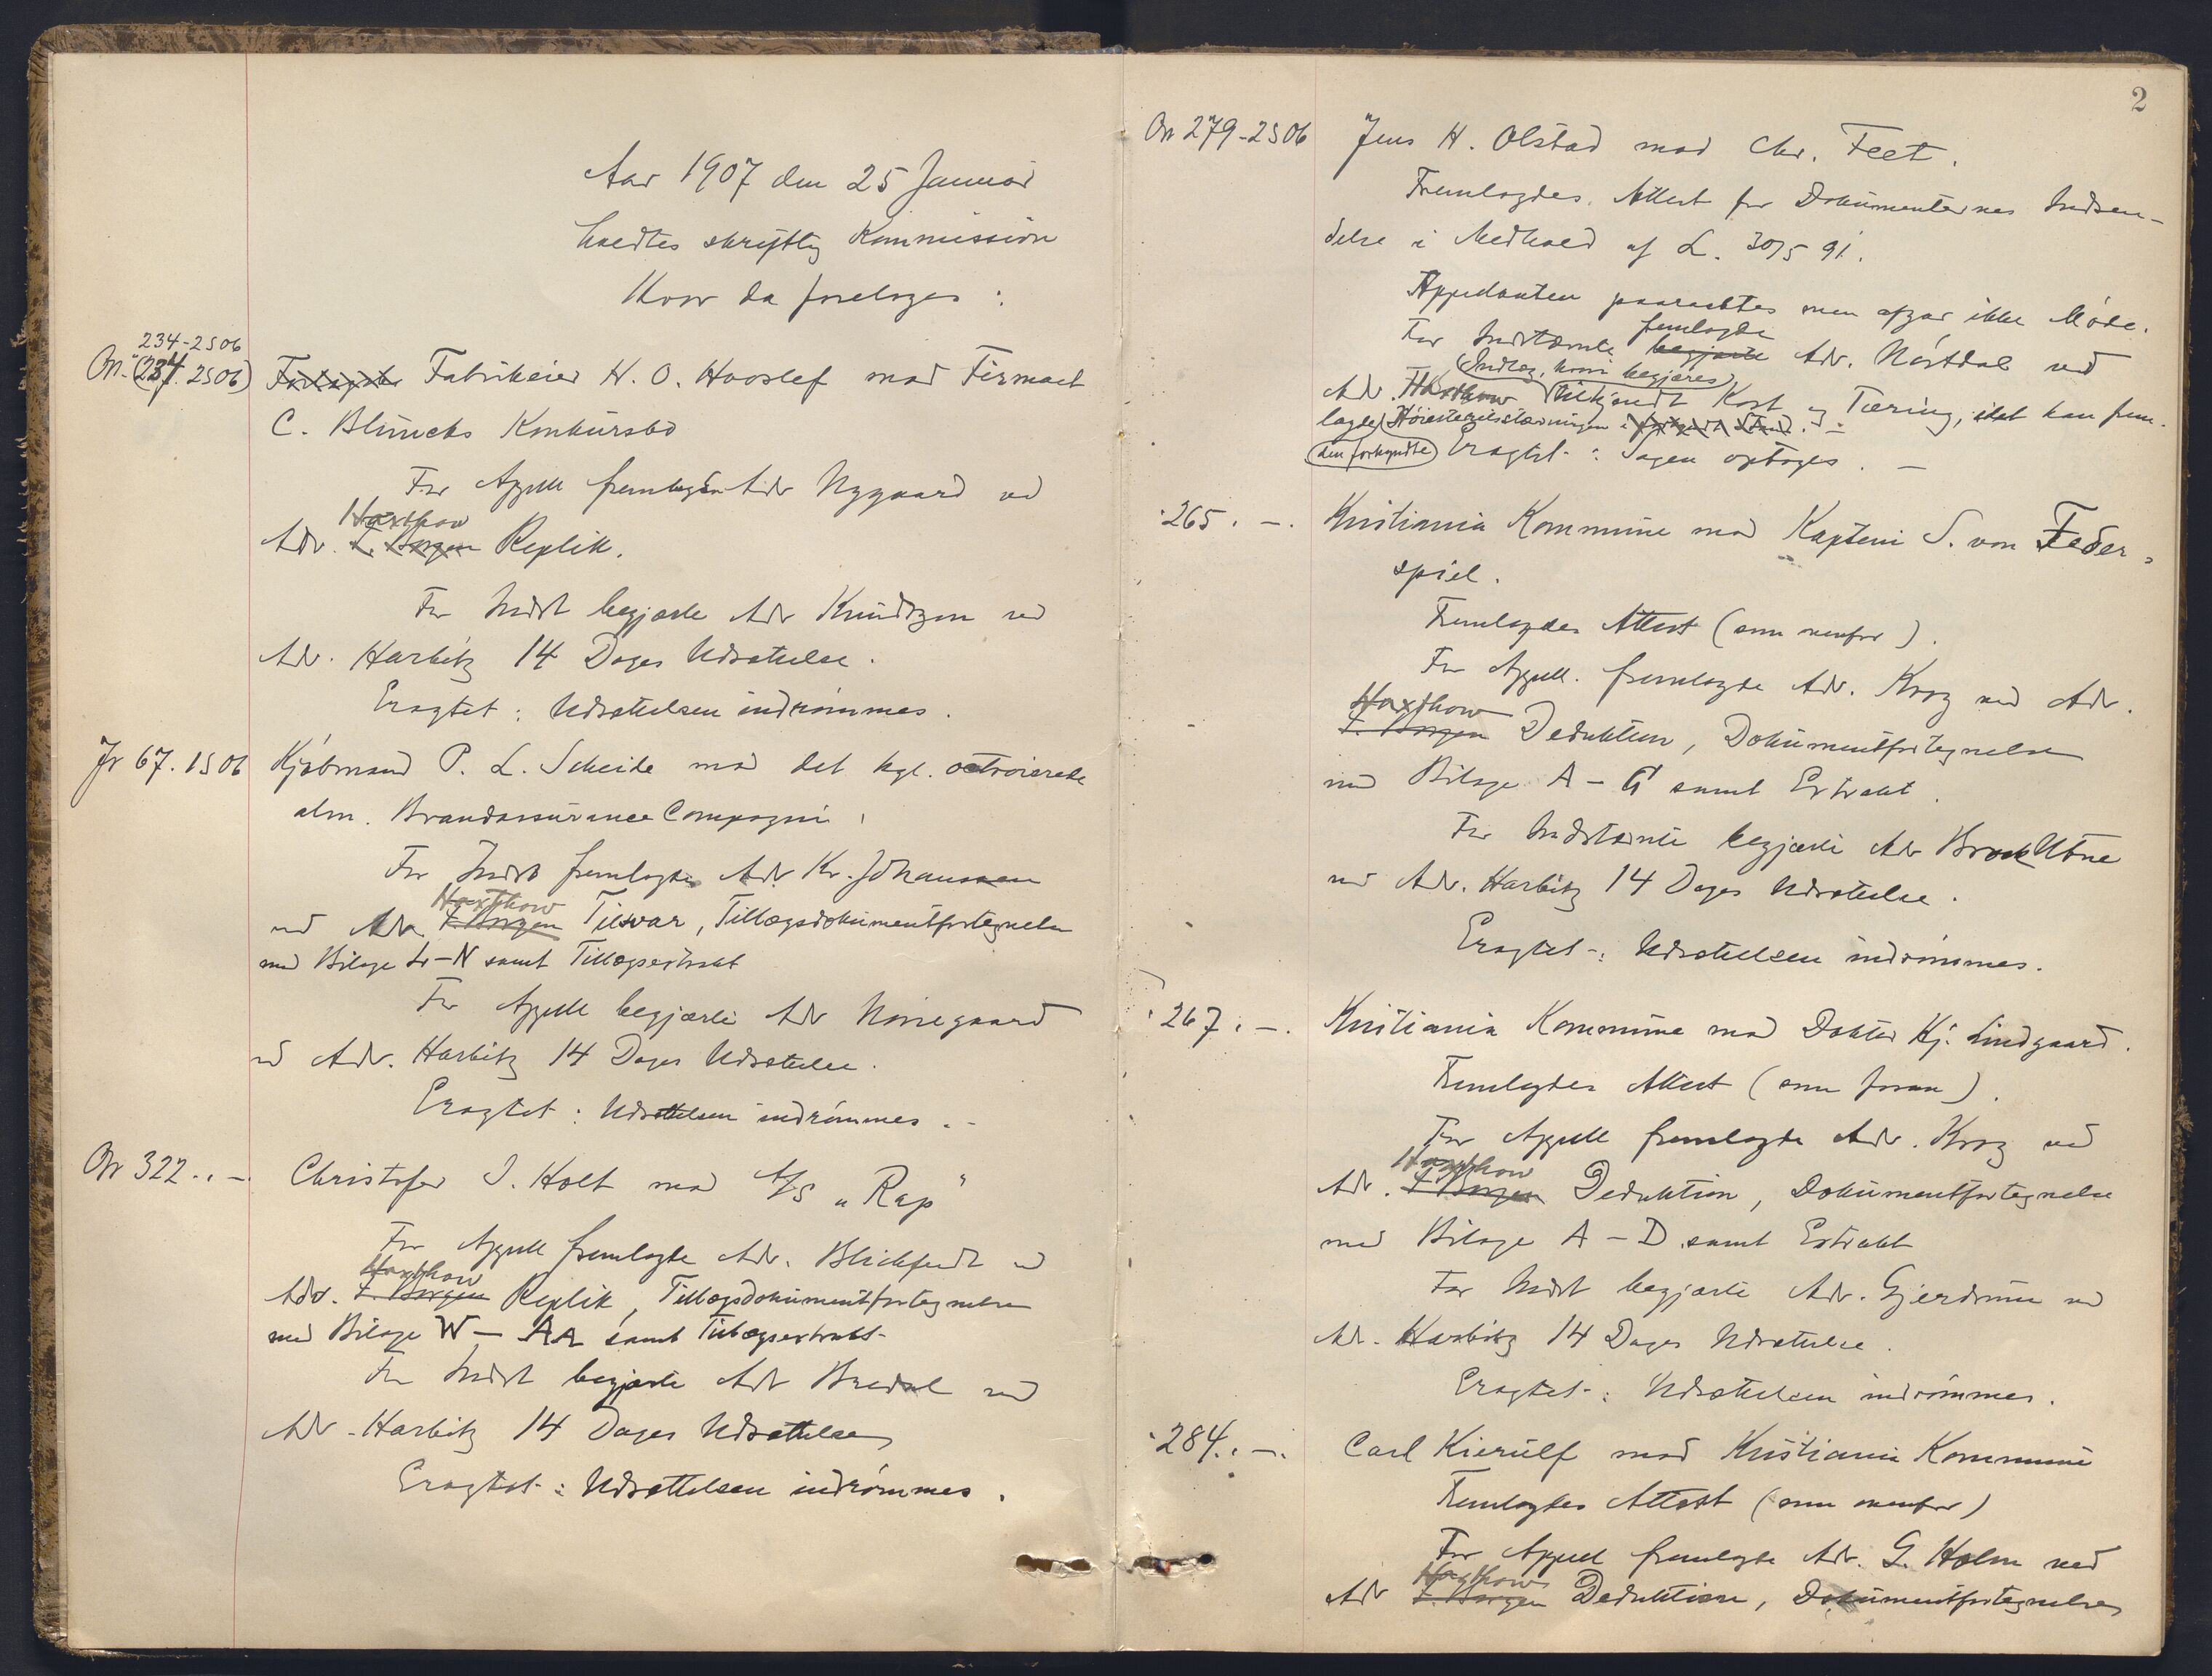 Aar 1907 den 25 Januar
holdtes skriftlig Kommission
Hvor da foretoges:
234-2S06
On. (234. 2S06) Fabrikeier H. O. Hvoslef mod Firmaet
C. Bluncks Konkursbo
For Appell fremlagde Adv Nygaard ved
Haxthow
Adv. F. Borgen Replik.
For Indst begjærte Adv Knudtzon ved
Adv. Harbitz 14 Dages Udsættelse.
Eragtet: Udsættelsen indrømmes.
Jr 67. 1S06 Kjøbmand P. L. Scheide mod det kgl. octroierede
alm. Brandassurance Compagni.
For Indst fremlagde Adv. Kr. Johanssen
Haxthow
ved Adv F. Borgen Tilsvar, Tillægsdokumentfortegnelse
med Bilage L-N samt Tillægsextrakt
For Appell begjærte Adv Nørregaard
ved Adv. Harbitz 14 Dages Udsættelse.
Eragtet: Udsættelsen indrømmes. -
On 322. . - Christofer I. Holt mod A/S "Rap"
For Appell fremlagde Adv. Blichfeldt ved
Haxthow
Adv. F. Borgen Replik, Tillægsdokumentfortegnelse
med Bilage W - AA samt Tillægsextrakt
For Indst begjærte Adv Bredal ved
Adv. Harbitz 14 Dages Udsættelse
Eragtet: Udsættelsen indrømmes.
2
On 279-2S06 Jens H. Olstad mod Chr. Feet.
Fremlagdes Attest for Dokumenternes Indsen-
delse i Medhold af L. 30/5 91.
Appellanten paaraabtes men afgav ikke Møde.
fremlagde
For Indstævnte begjærte Adv. Nørstdal ved
Indlæg, hvori begjæres
Adv. Haxthow tilkjendt Kost og Tæring, idet han frem-
lagde Høiesteretsstævningen
den forkyndte Eragtet: Sagen optages. -
265. -. Kristiania Kommune mod Kaptein S. von Feder-
spiel.
Fremlagdes Attest (som ovenfor).
For Appell. fremlagde Adv. Krog ved Adv.
Haxthow
F. Borgen Deduktion, Dokumentfortegnelse
med Bilage A - G samt Extrakt.
For Indstævnte begjærte Adv Brock Utne
ved Adv. Harbitz 14 Dages Udsættelse.
Eragtet: Udsættelsen indrømmes.
267. -. Kristiania Kommune mod Doktor Hj. Lindgaard.
Fremlagdes Attest (som foran).
For Appell fremlagde Adv. Krog ved
Haxthow
Adv. F Borgen Deduktion, Dokumentfortegnelse
med Bilage A - D samt Extrakt
For Indst begjærte Adv. Gjerdrum ved
Adv. Harbitz 14 Dages Udsættelse.
Eragtet: Udsættelsen indrømmes.
284. -. Carl Kierulf mod Kristiania Kommune
Fremlagdes Attest (som ovenfor)
For Appell fremlagde Adv. G. Holm ved
Haxthow
Adv F. Borgen Deduktion, Dokumentfortegnelse